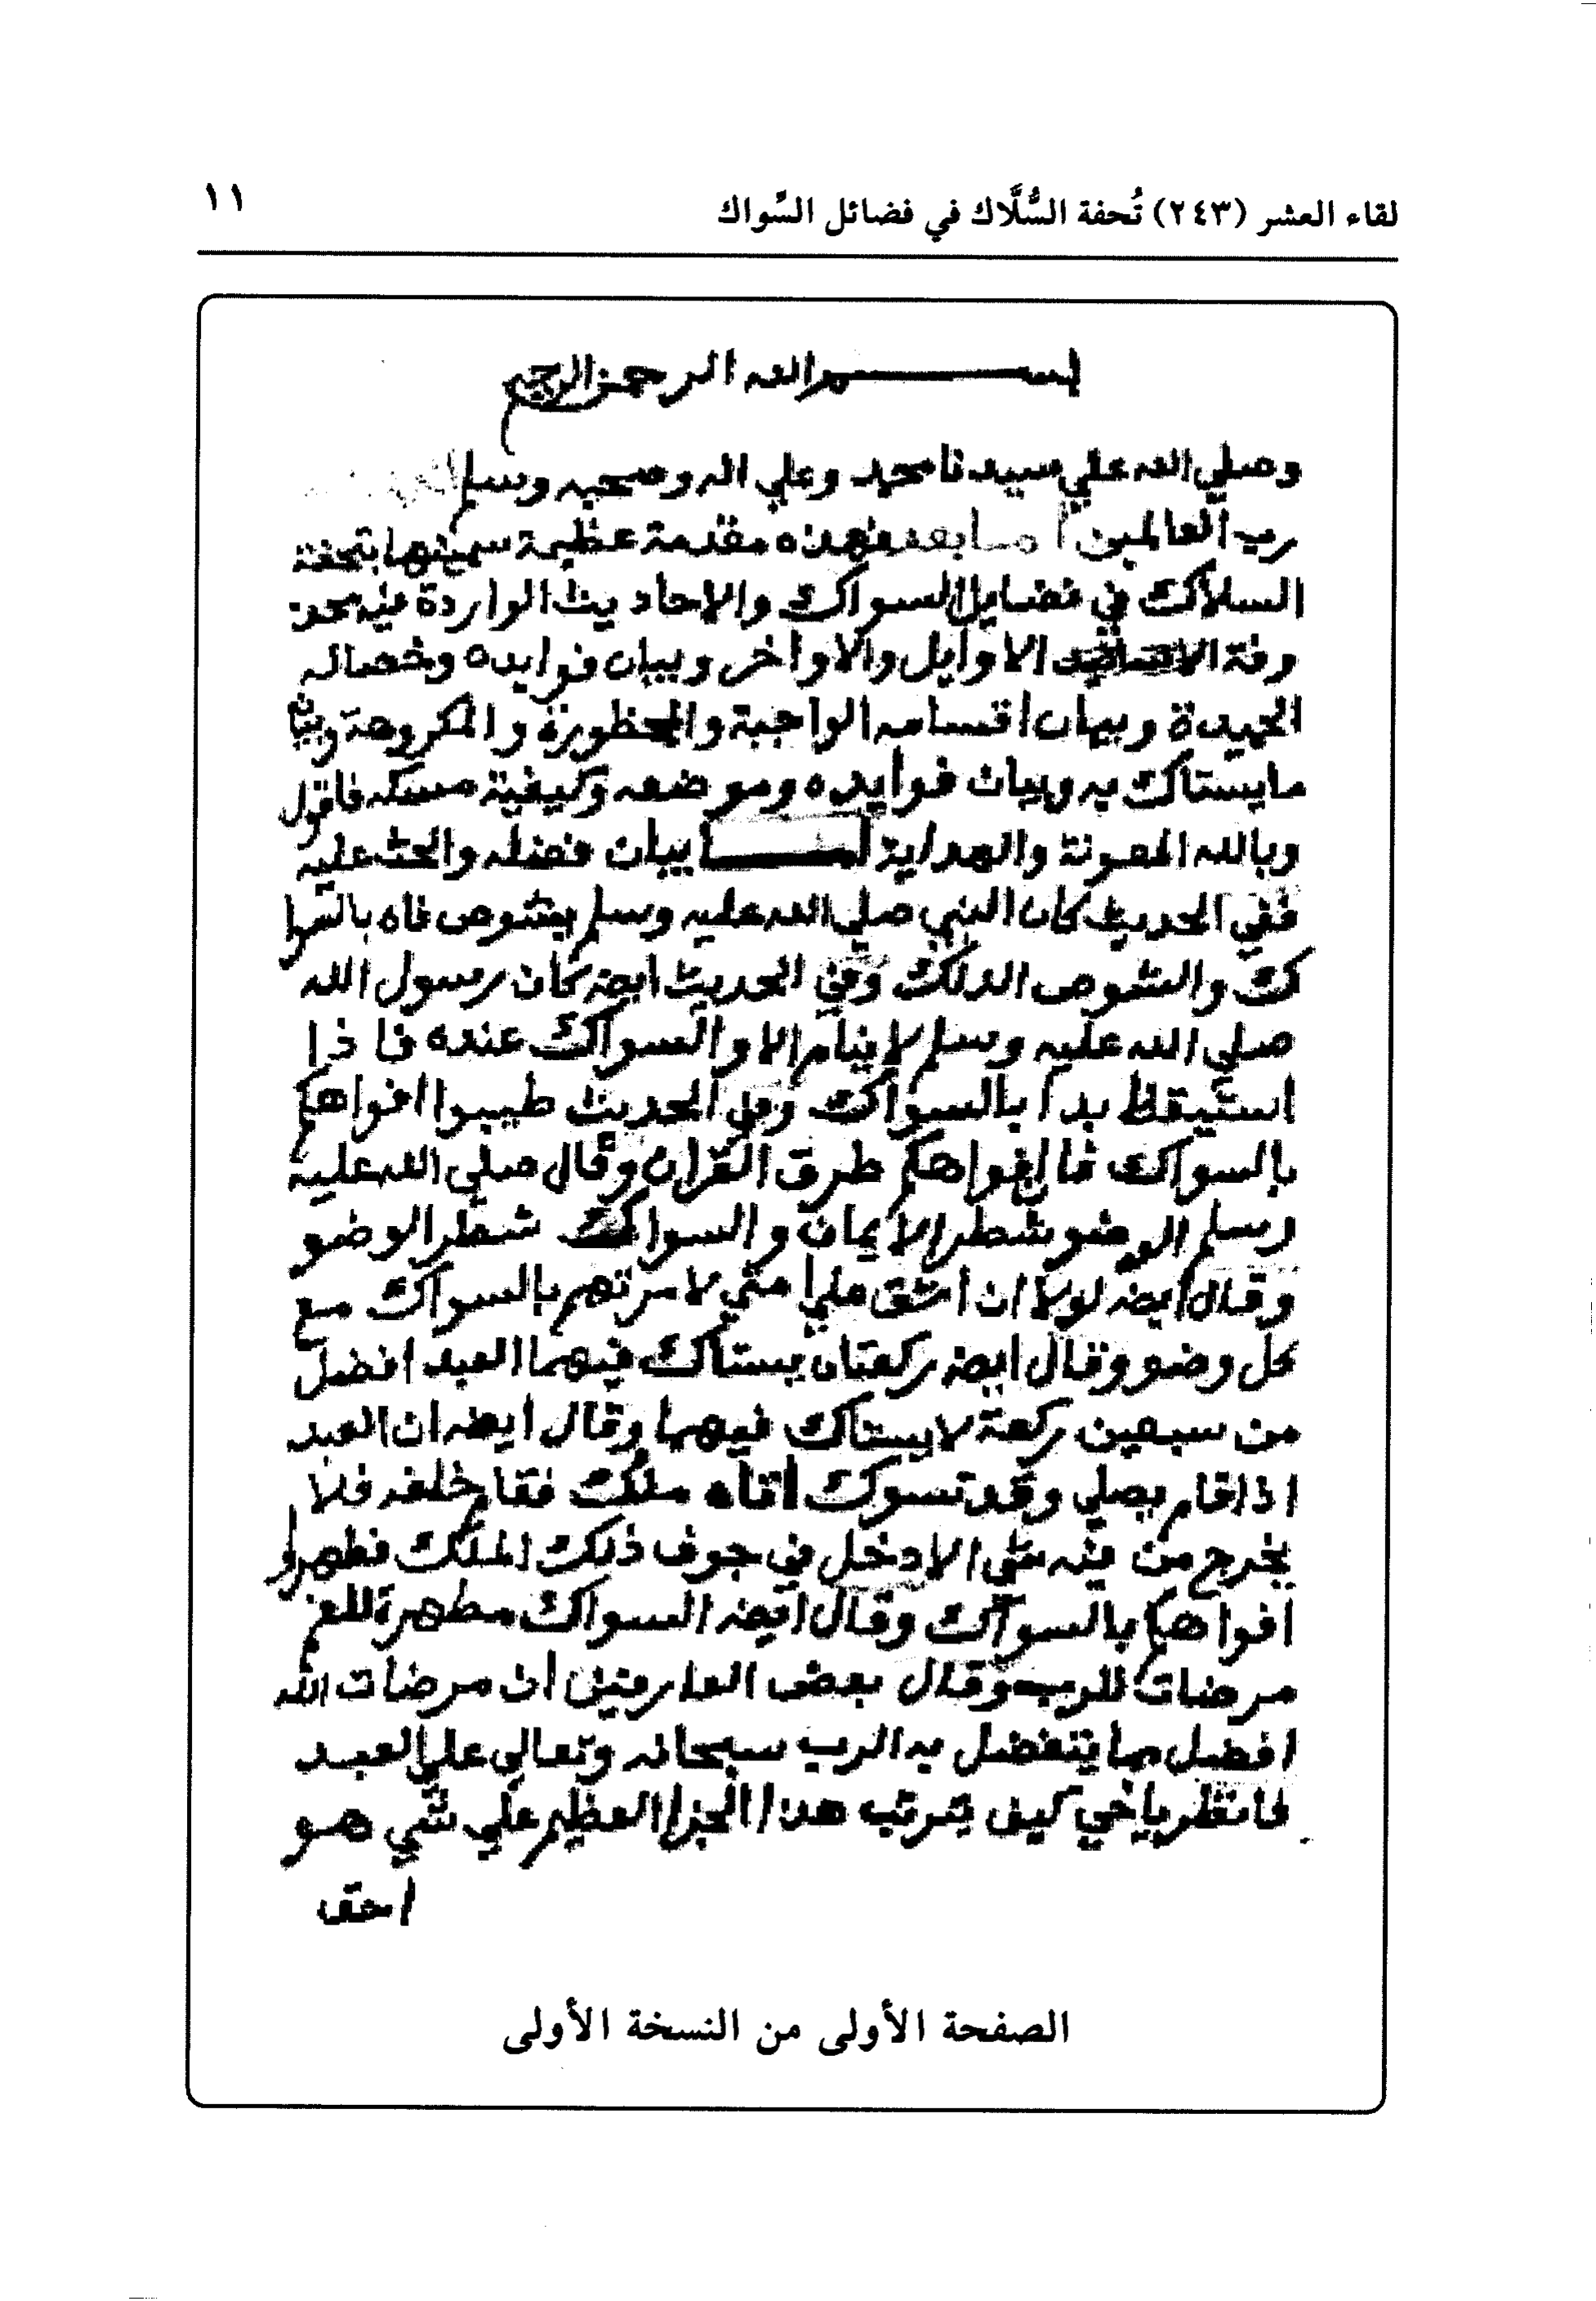 لقاء العشر (٢٤٣) تُحفة السُّلَّاك في فضائل السِّواك
١١
بسم الله الرحمن الرحيم
وصلي الله علي سيدنا محمد وعلي اله وصحبه وسلم
رب العالمين اما بعد فهذه مقدمة عظيمة سميتها بتحفة
السلاك في فضايل السواك والاحاديث الواردة فيه محذ
وفة الاسانيد الاوايل والاواخر وبيان فوايده وخصاله
الحميدة وبيان اقسامه الواجبة والمحظورة والمكروهة وبيان
ما يستاك به وبيان فوايده وموضعه وكيفية مسكه فاقول
وبالله المعونة والهداية اما بيان فضله والحث عليه
ففي الحديث كان النبي صلي الله عليه وسلم يشوص فاه بالسوا
ك والشوص الدلك وفي الحديث ايضه كان رسول الله
صلي الله عليه وسلم لا ينام الا والسواك عنده فاذا
استيقظ بدا بالسواك وفي الحديث طيبوا افواهكم
بالسواك فان افواهكم طرق القران وقال صلي الله عليه
وسلم الوضو شطر الايمان والسواك شطر الوضو
وقال ايضه لولا ان اشق علي امتي لامرتهم بالسواك مع
كل وضو وقال ايضه ركعتان يستاك فيهما العبد افضل
من سبعين ركعة لا يستاك فيهما وقال ايضه ان العبد
اذا قام يصلي وقد تسوك اتاه ملك فقام خلفه فلا
يخرج من فيه شي الا دخل في جوف ذلك الملك فطهروا
افواهكم بالسواك وقال ايضه السواك مطهرة للفم
مرضات للرب وقال بعض العارفين ان مرضات الله
افضل ما يتفضل به الرب سبحانه وتعالي علي العبد
فانظر يا خي كيف يترتب هذا الجزا العظيم علي شي هو
اخف
الصفحة الأولى من النسخة الأولى